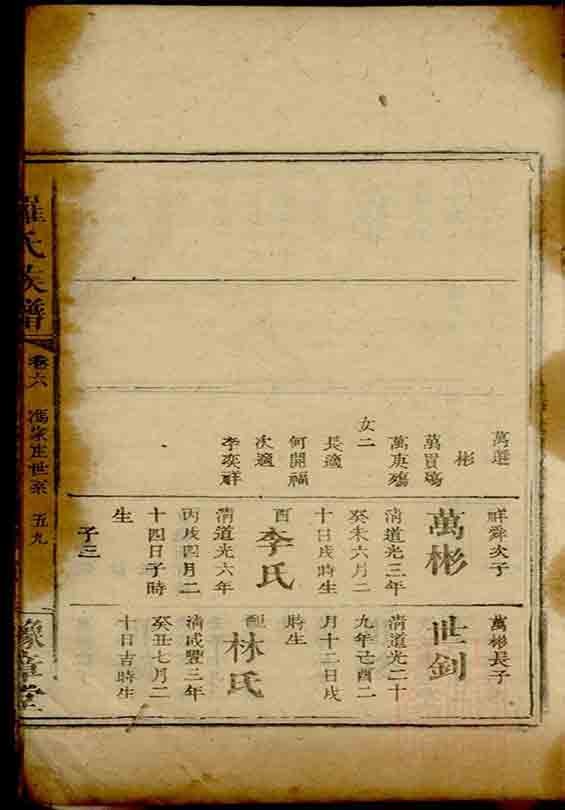 羅氏族譜
卷六
馮家庄世系
五九
豫章堂
萬選
彬
萬買殤
萬庚殤
女二
長適
何開福
次適
李奕祥
祥舜次子
萬彬
清道光三年
癸未六月二
十日戌時生
配
李氏
清道光六年
丙戌四月二
十四日子時
生
子三
萬彬長子
世釗
清道光二十
九年己酉二
月十二日戌
時生
配
林氏
清咸豐三年
癸丑七月二
十日吉時生